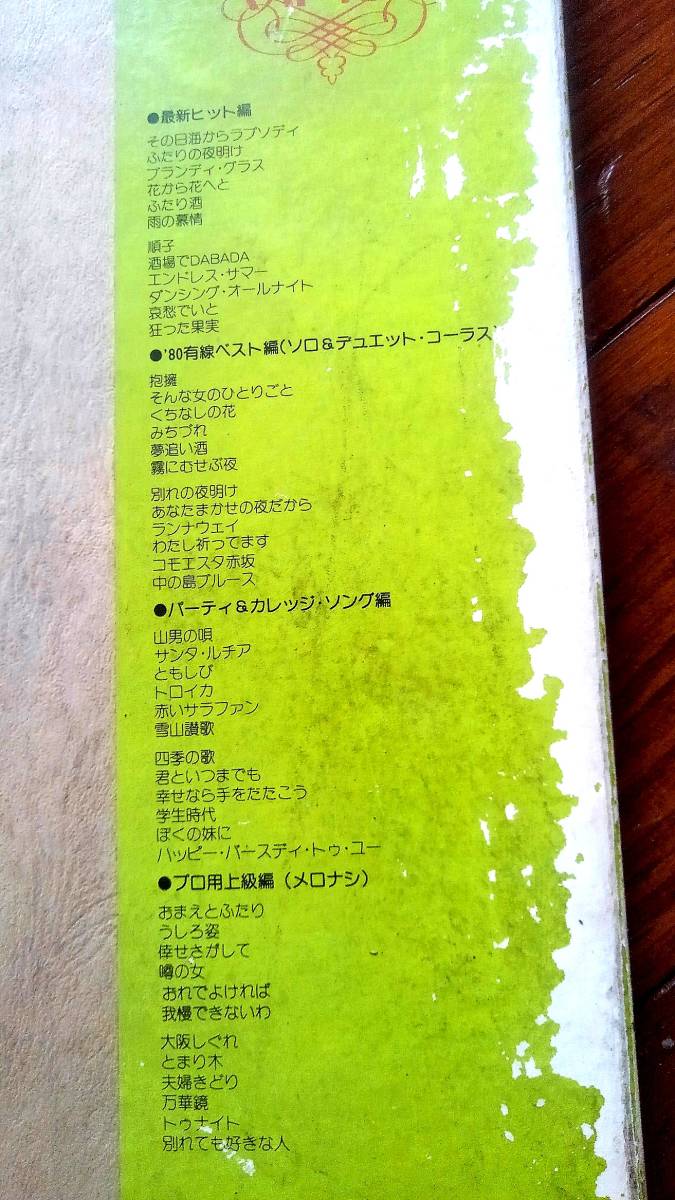 ●最新ヒット編
その日海からラプソディ
ふたりの夜明け
ブランディ・グラス
花から花へと
ふたり酒
雨の慕情
順子
酒場でDABADA
エンドレス・サマー
ダンシング・オールナイト
哀愁でいと
狂った果実
●'80有線ベスト編(ソロ&デュエット・コーラス
抱擁
そんな女のひとりごと
くちなしの花
みちづれ
夢追い酒
霧にむせぶ夜
別れの夜明け
あなたまかせの夜だから
ランナウェイ
わたし祈ってます
コモエスタ赤坂
中の島ブルース
●パーティ&カレッジ・ソング編
山男の唄
サンタ・ルチア
ともしび
トロイカ
赤いサラファン
雪山讃歌
四季の歌
君といつまでも
幸せなら手をたたこう
学生時代
ぼくの妹に
ハッピー・バースディ・トゥ・ユー
●プロ用上級編(メロナシ)
おまえとふたり
うしろ姿
倖せさがして
噂の女
おれでよければ
我慢できないわ
大阪しぐれ
とまり木
夫婦きどり
万華鏡
トゥナイト
別れても好きな人